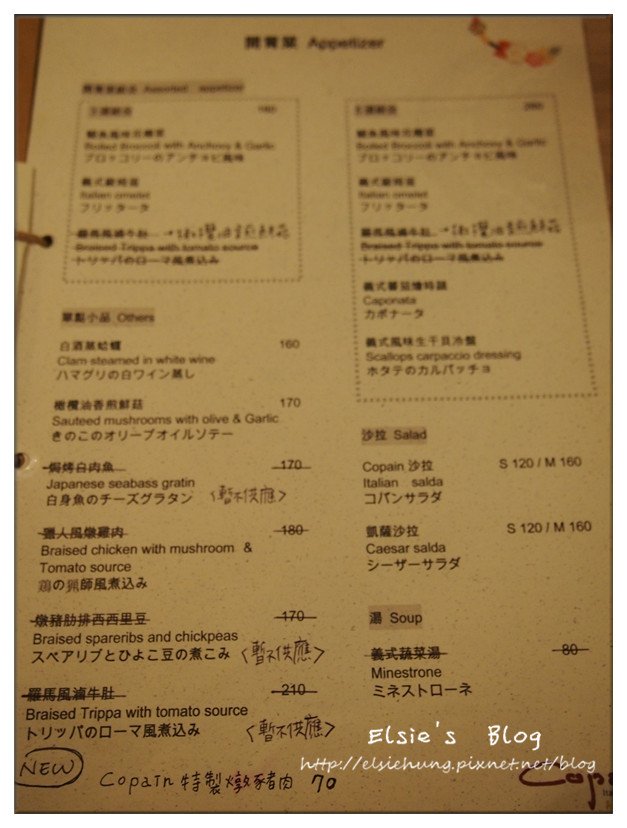 開胃菜 Appetizer
開胃菜組合 Assorted appetizer
160
鯷魚風味花椰菜
Boiled Broccoli with Anchovy & Garlic
ブロッコリーのアンチョビ風味
義式蛋捲
Italian omelet
フリッタータ
羅馬風滷牛肚
Braised Trippa with tomato source
トリッパのローマ風煮込み
白酒蒸蛤蠣 160
Clam steamed in white wine
ハマグリの白ワイン蒸し
橄欖油香煎鮮菇 170
Sauteed mushrooms with olive & Garlic
きのこのオリーブオイルソテー
焗烤白肉魚 170
Japanese seabass gratin
白身魚のチーズグラタン <暫不供應>
獵人風燉雞肉 180
Braised chicken with mushroom &
Tomato source
鶏の猟師風煮込み
燉豬肋排西西里豆 170
Braised spareribs and chickpeas
スペアリブとひよこ豆の煮こみ <暫不供應>
羅馬風滷牛肚 210
Braised Trippa with tomato source
トリッパのローマ風煮込み <暫不供應>
NEW Copain 特製燉豬肉 70
單點小品 Others
鯷魚風味花椰菜
Boiled Broccoli with Anchovy & Garlic
ブロッコリーのアンチョビ風味
Italian omelet
フリッタータ
羅馬風滷牛肚
Braised Trippa with tomato source
トリッパのローマ風煮込み
Caponata
カポナータ
義式風味生干貝冷盤
Scallops carpaccio dressing
ホタテのカルパッチョ
沙拉 Salad
Copain 沙拉 S 120 / M 160
Italian salda
コパンサラダ
凱薩沙拉 S 120 / M 160
Caesar salda
シーザーサラダ
湯 Soup
義式蔬菜湯 80
Minestrone
ミネストローネ
Elsie's Blog
http://elsiehung.pixnet.net/blog